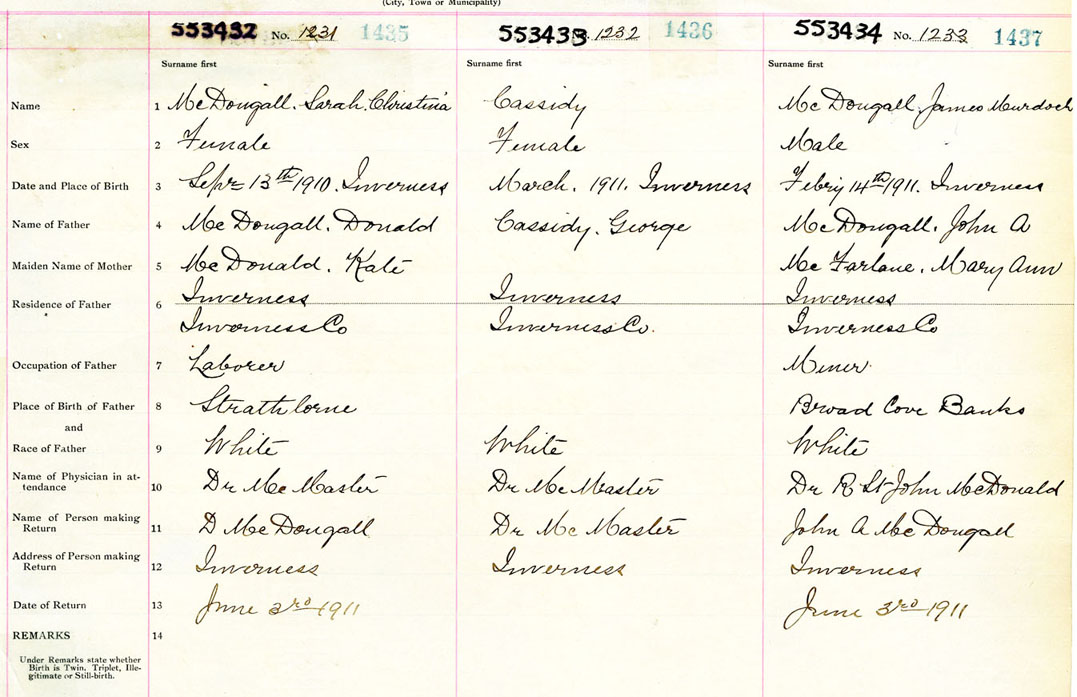 (City, Town or Municipality)
553432 No. 1231 1435 553433 1232 1436 553434 No. 1233 1437
Surname first Surname first Surname first
Name 1 McDougall. Sarah. Christina Cassidy McDougall. James Murdoch
Sex 2 Female Female Male
Date and Place of Birth 3 Sepr 13th 1910. Inverness March. 1911. Inverness Febry 14th 1911. Inverness
Name of Father 4 McDougall. Donald Cassidy. George McDougall. John A
Maiden Name of Mother 5 McDonald. Kate McFarlane. Mary Ann
Residence of Father 6 Inverness Inverness Inverness
Inverness Co Inverness Co. Inverness Co
Occupation of Father 7 Laborer Miner
Place of Birth of Father 8 Strathlorne Broad Cove Banks
and
Race of Father 9 White White White
Name of Physician in at-
tendance 10 Dr McMaster Dr McMaster Dr R St John McDonald
Name of Person making
Return 11 D McDougall Dr McMaster John A McDougall
Address of Person making
Return 12 Inverness Inverness Inverness
Date of Return 13 June 3rd 1911 June 3rd 1911
REMARKS 14
Under Remarks state whether
Birth is Twin, Triplet, Ille-
gitimate or Still-birth.